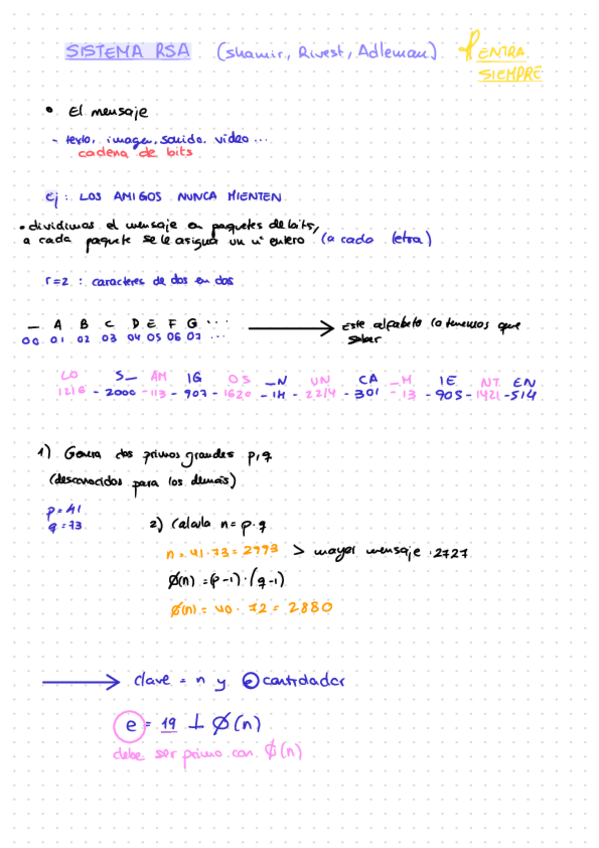 SISTEMA RSA (Shamir, Rivest, Adleman) ENTRA SIEMPRE
• El mensaje
- texto, imagen, sonido, video ...
cadena de bits
ej: LOS AMIGOS NUNCA MIENTEN
• dividimos el mensaje en paquetes de bits,
a cada paquete se le asigna un nº entero (a cada letra)
r=2 : caracteres de dos en dos
_ A B C D E F G ... ⟶ Este alfabeto lo tenemos que saber
00 01 02 03 04 05 06 07 ...
LO S_ AM IG OS _N UN CA _M IE NT EN
1216 - 2000 - 113 - 907 - 1620 - 14 - 2214 - 301 - 13 - 905 - 1421 - 514
1) Genera dos primos grandes p,q
(desconocidos para los demás)
p=41
q=73
2) Calcula n=p·q
n=41·73=2993 > mayor mensaje: 2727
Ø(n)=(p-1)·(q-1)
Ø(n)=40·72=2880
⟶ clave = n y e
e = 19 ⊥ Ø(n)
debe ser primo con Ø(n)